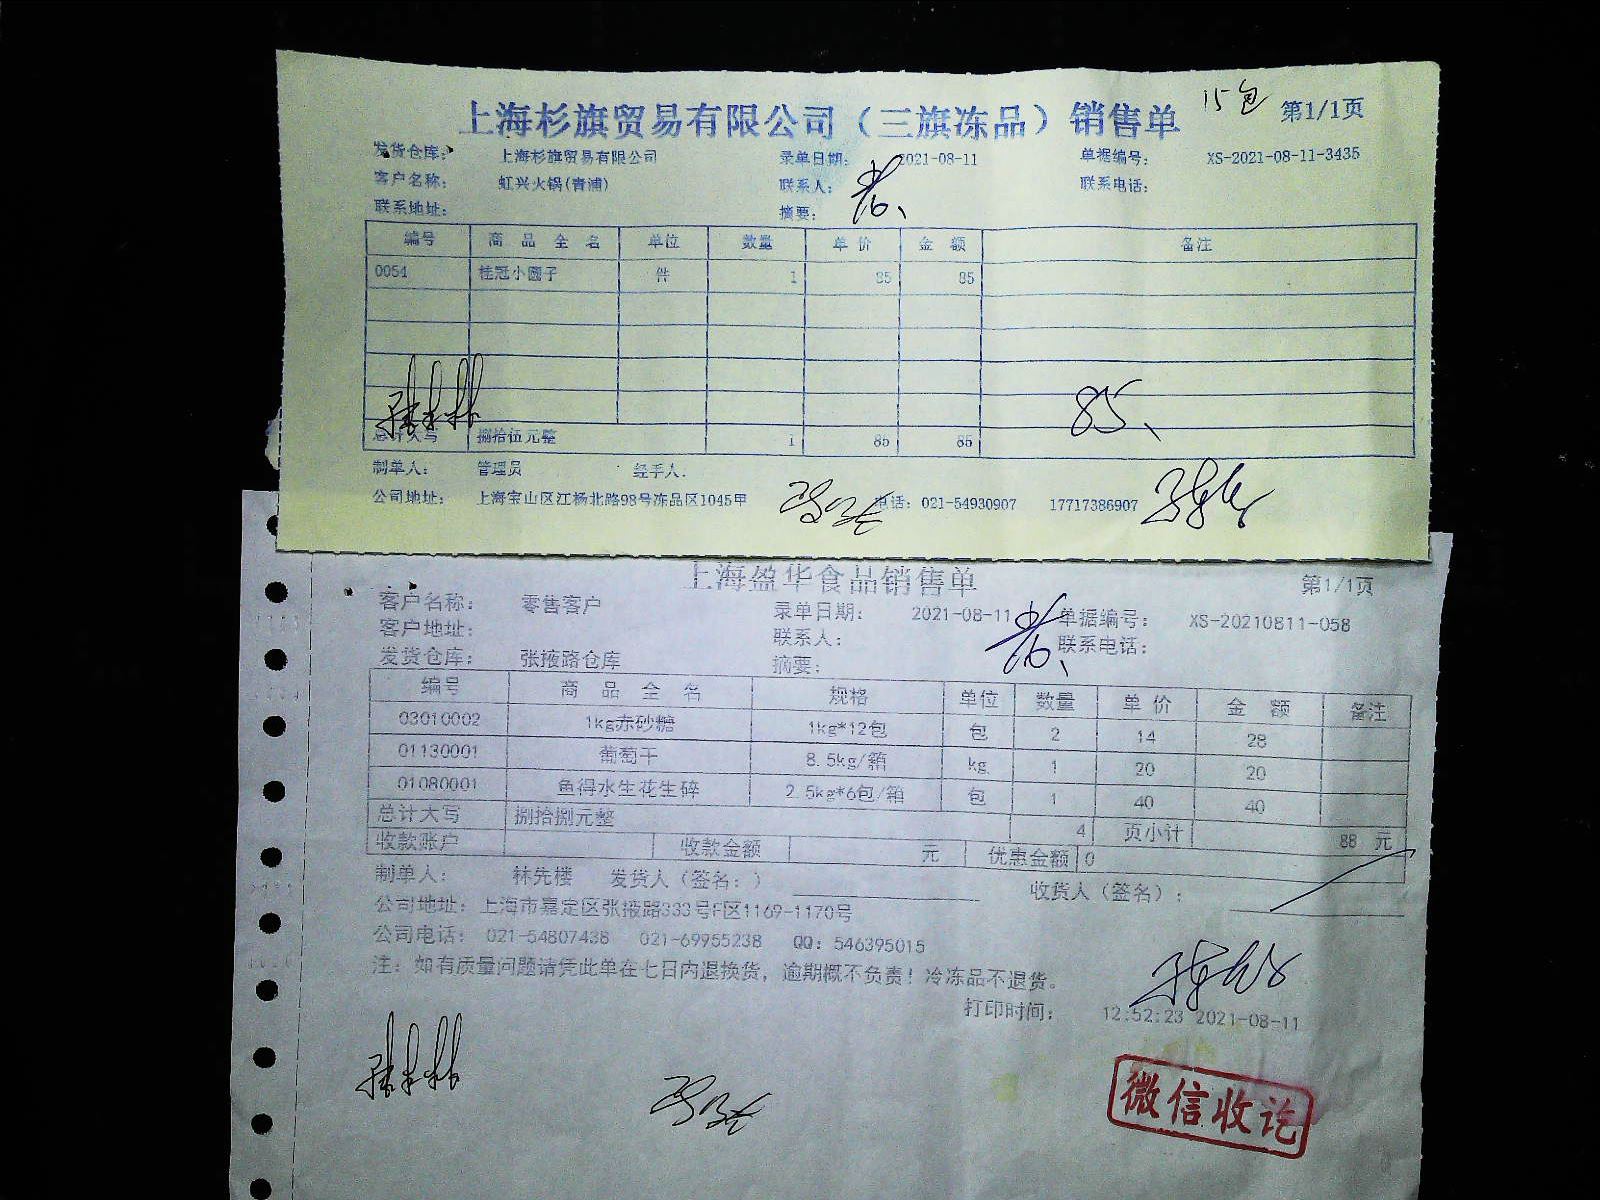 15包
上海杉旗贸易有限公司（三旗冻品）销售单 第1/1页
发货仓库： 上海杉旗贸易有限公司 录单日期： 2021-08-11 单据编号： XS-2021-08-11-3435
客户名称： 虹兴火锅(青浦) 联系人： 联系电话：
联系地址： 摘要：
编号 商品全名 单位 数量 单价 金额 备注
0054 桂冠小圆子 件 1 85 85
85、
总计大写 捌拾伍元整 1 85 85
制单人： 管理员 经手人.
公司地址： 上海宝山区江杨北路98号冻品区1045甲 电话：021-54930907 17717386907
上海盈华食品销售单 第1/1页
客户名称： 零售客户 录单日期： 2021-08-11 单据编号： XS-20210811-058
客户地址： 联系人： 联系电话：
发货仓库： 张掖路仓库 摘要：
编号 商品全名 规格 单位 数量 单价 金额 备注
03010002 1kg赤砂糖 1kg*12包 包 2 14 28
01130001 葡萄干 8.5kg/箱 kg 1 20 20
01080001 鱼得水生花生碎 2.5kg*6包/箱 包 1 40 40
总计大写 捌拾捌元整 4 页小计 88 元
收款账户 收款金额 元 优惠金额 0
制单人： 林先楼 发货人（签名：） 收货人（签名）：
公司地址：上海市嘉定区张掖路333号F区1169-1170号
公司电话： 021-54807438 021-69955238 QQ：546395015
注：如有质量问题请凭此单在七日内退换货，逾期概不负责！冷冻品不退货。
打印时间： 12:52:23 2021-08-11
微信收讫